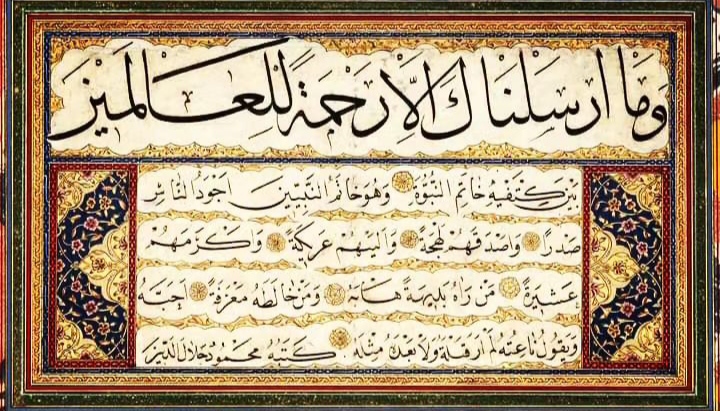 وَمَا اَرْسَلْنَاكَ اِلَّا رَحْمَةً لِلْعَالَمِينَ
بَيْنَ كَتِفَيْهِ خَاتَمُ النُّبُوَّةِ وَهُوَ خَاتَمُ النَّبِيِّينَ اَجْوَدُ النَّاسِ
صَدْرًا وَاَصْدَقُهُمْ لَهْجَةً وَاَلْيَنُهُمْ عَرِيكَةً وَاَكْرَمُهُمْ
عَشِيرَةً مَنْ رَاٰهُ بَدِيهَةً هَابَهُ وَمَنْ خَالَطَهُ مَعْرِفَةً اَحَبَّهُ
وَيَقُولُ نَاعِتُهُ لَمْ اَرَ قَبْلَهُ وَلَا بَعْدَهُ مِثْلَهُ كَتَبَهُ محمود جلال الدين